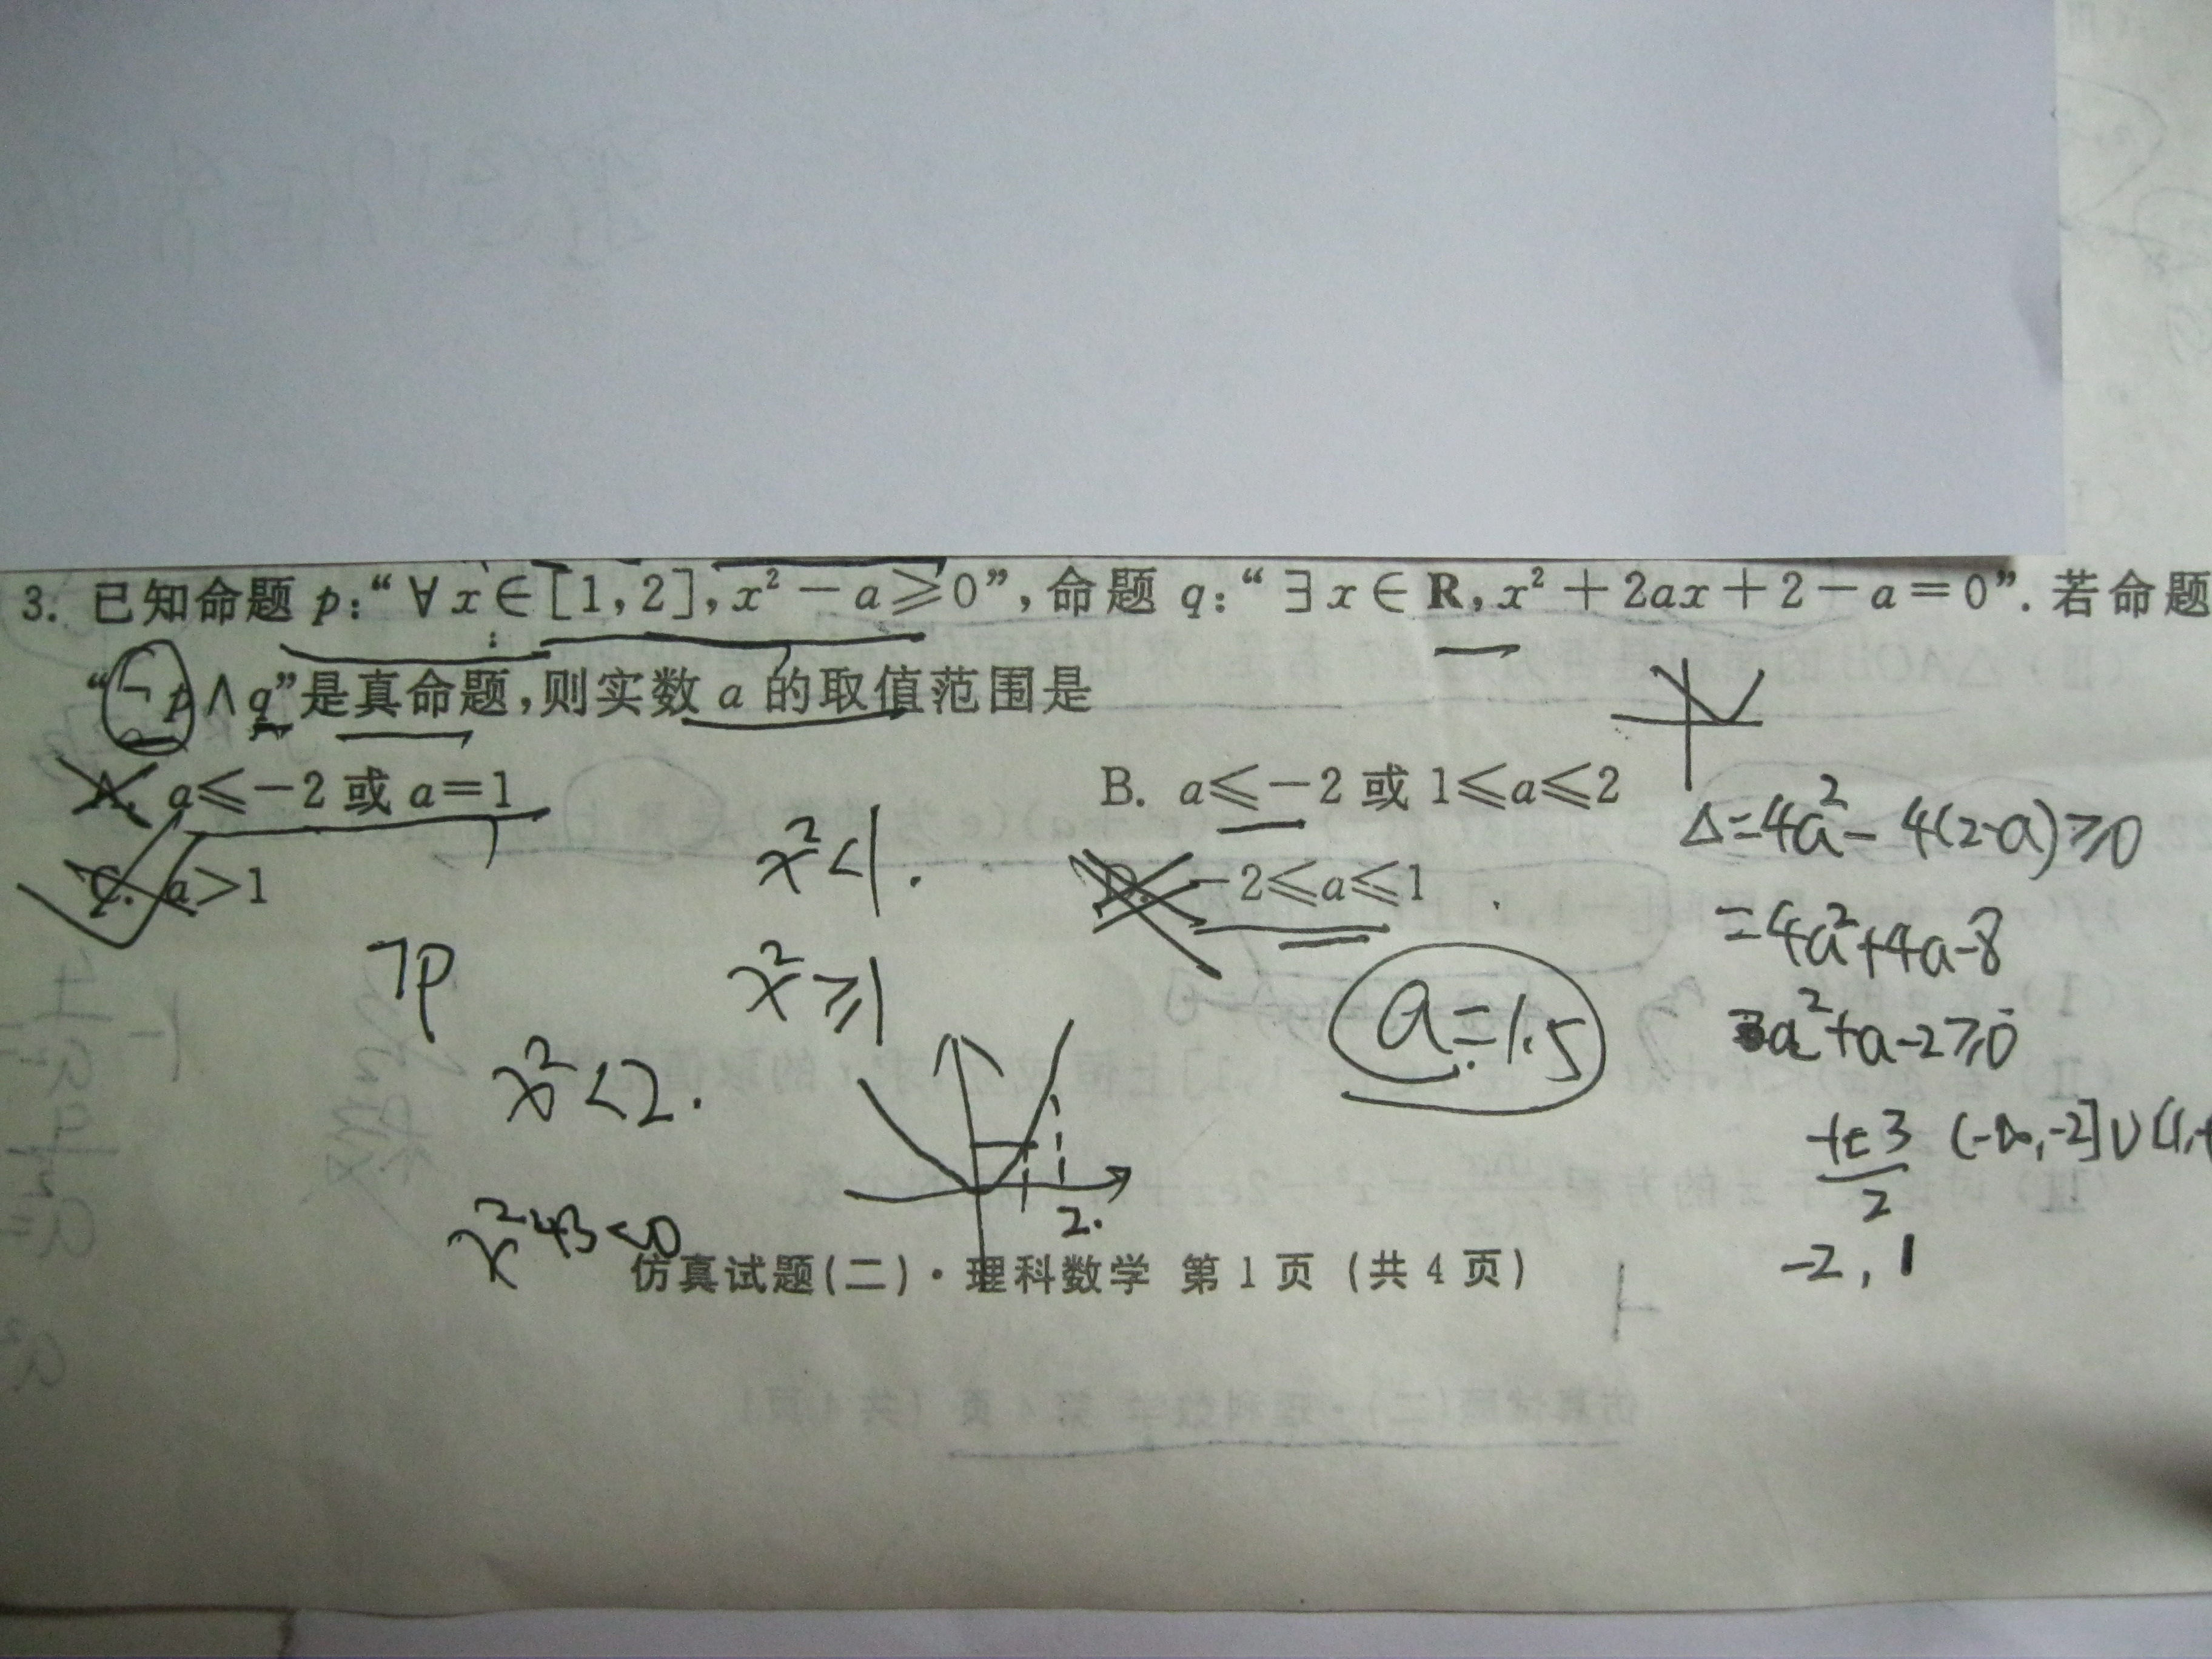 3. 已知命题 p:“∀x∈[1,2],x²-a≥0”,命题 q:“∃x∈R,x²+2ax+2-a=0”.若命题
“¬p∧q”是真命题,则实数 a 的取值范围是
A. a≤-2 或 a=1
B. a≤-2 或 1≤a≤2
C. a>1
D. -2≤a≤1
x²<1.
Δ=4a²-4(2-a)≥0
=4a²+4a-8
¬p
x²≥1
a=1.5
a²+a-2≥0
x²<2.
(-∞,-2]∪[1,+
2
2.
-2,1
仿真试题(二)·理科数学 第 1 页 (共 4 页)